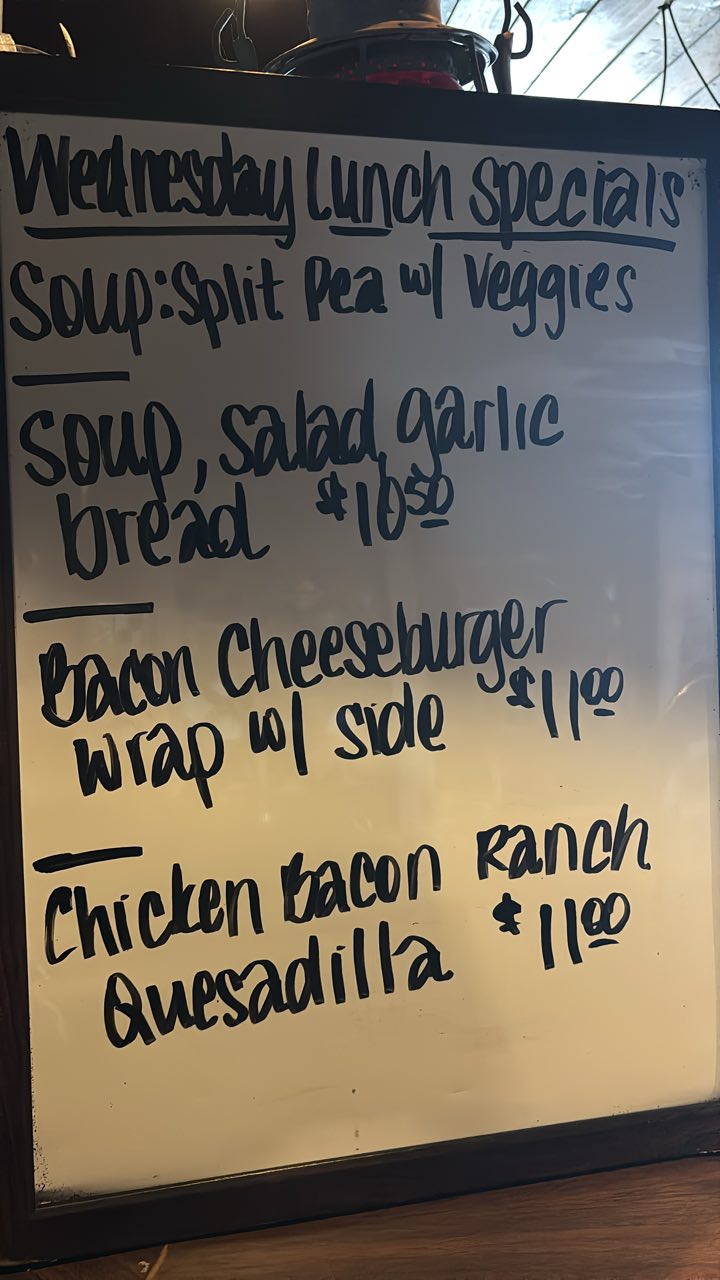 Wednesday Lunch Specials
Soup: Split Pea w/ Veggies
Soup, salad, garlic
bread $10.50
Bacon Cheeseburger
wrap w/ side $11.00
Chicken Bacon Ranch
Quesadilla $11.00